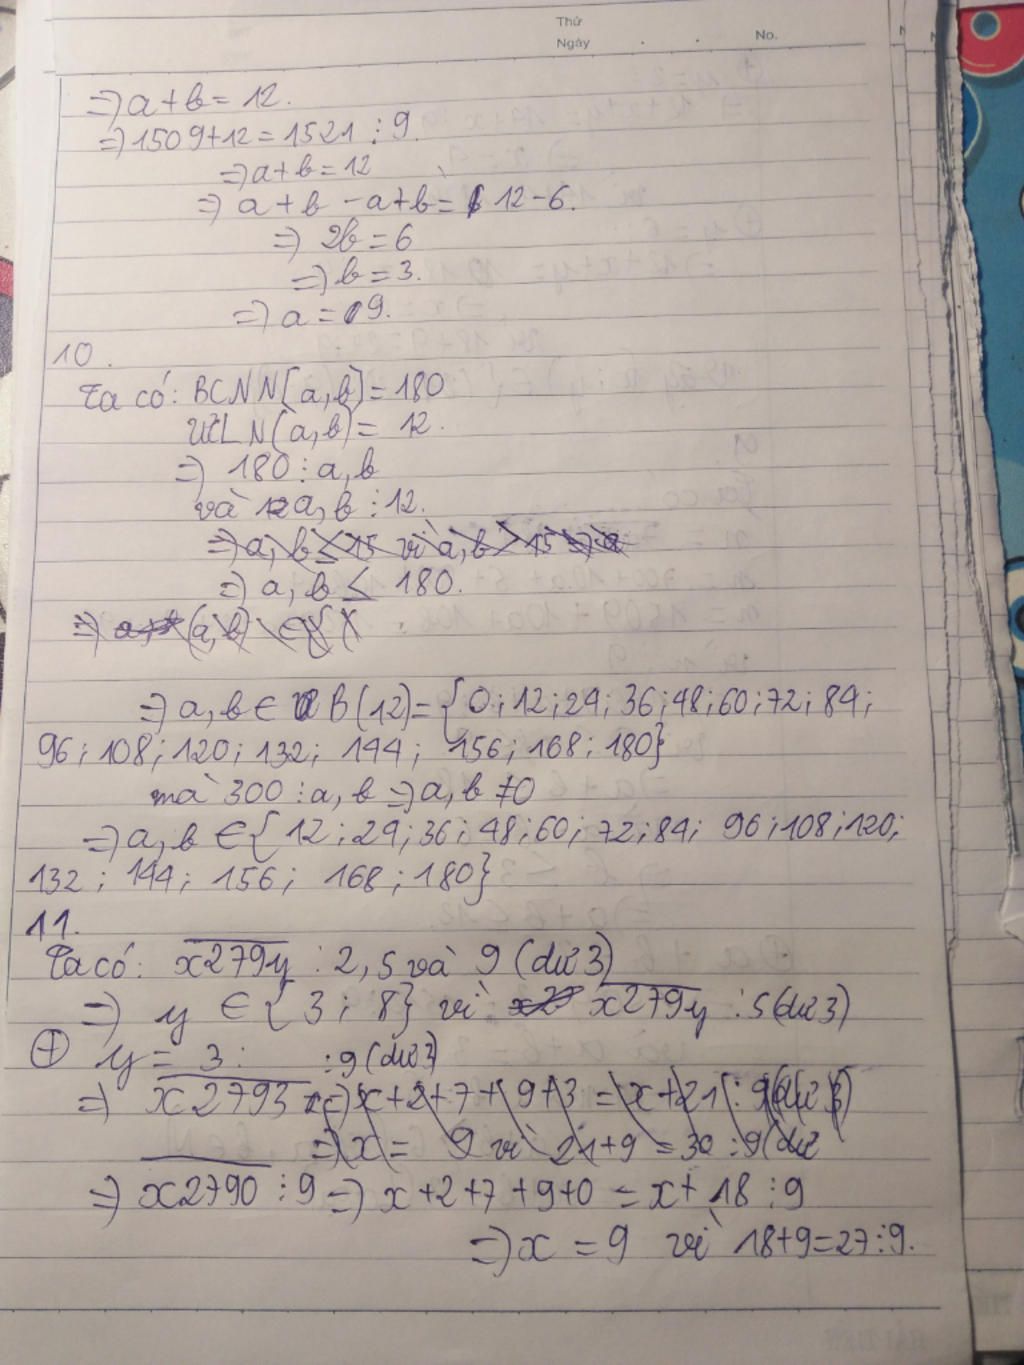 Thứ
Ngày . . No.
=> a + b = 12.
=> 1509+12 = 1521 ⋮ 9.
=> a + b = 12
=> a + b - a + b = 12 - 6.
=> 2b = 6
=> b = 3.
=> a = 9.
10.
Ta có: BCNN[a,b] = 180
ƯCLN(a,b) = 12.
=> 180 ⋮ a, b
và a, b ⋮ 12.
=> a, b ≤ 15 vì a, b > 15 => a
=> a, b ≤ 180.
=> (a, b) ∈ {
=> a, b ∈ B(12) = {0; 12; 24; 36; 48; 60; 72; 84;
96; 108; 120; 132; 144; 156; 168; 180}
mà 300 ⋮ a, b => a, b ≠ 0
=> a, b ∈ {12; 24; 36; 48; 60; 72; 84; 96; 108; 120;
132; 144; 156; 168; 180}
11.
Ta có: x279y ⋮ 2, 5 và 9 (dư 3)
=> y ∈ {3; 8} vì x279y ⋮ 5 (dư 3)
⊕ y = 3: ⋮ 9 (dư 3)
=> x2793 => x+2+7+9+3 = x+21 ⋮ 9 (dư 3)
=> x = 9 vì 21+9 = 30 ⋮ 9 (dư
=> x2790 ⋮ 9 => x+2+7+9+0 = x+18 ⋮ 9
=> x = 9 vì 18+9=27 ⋮ 9.